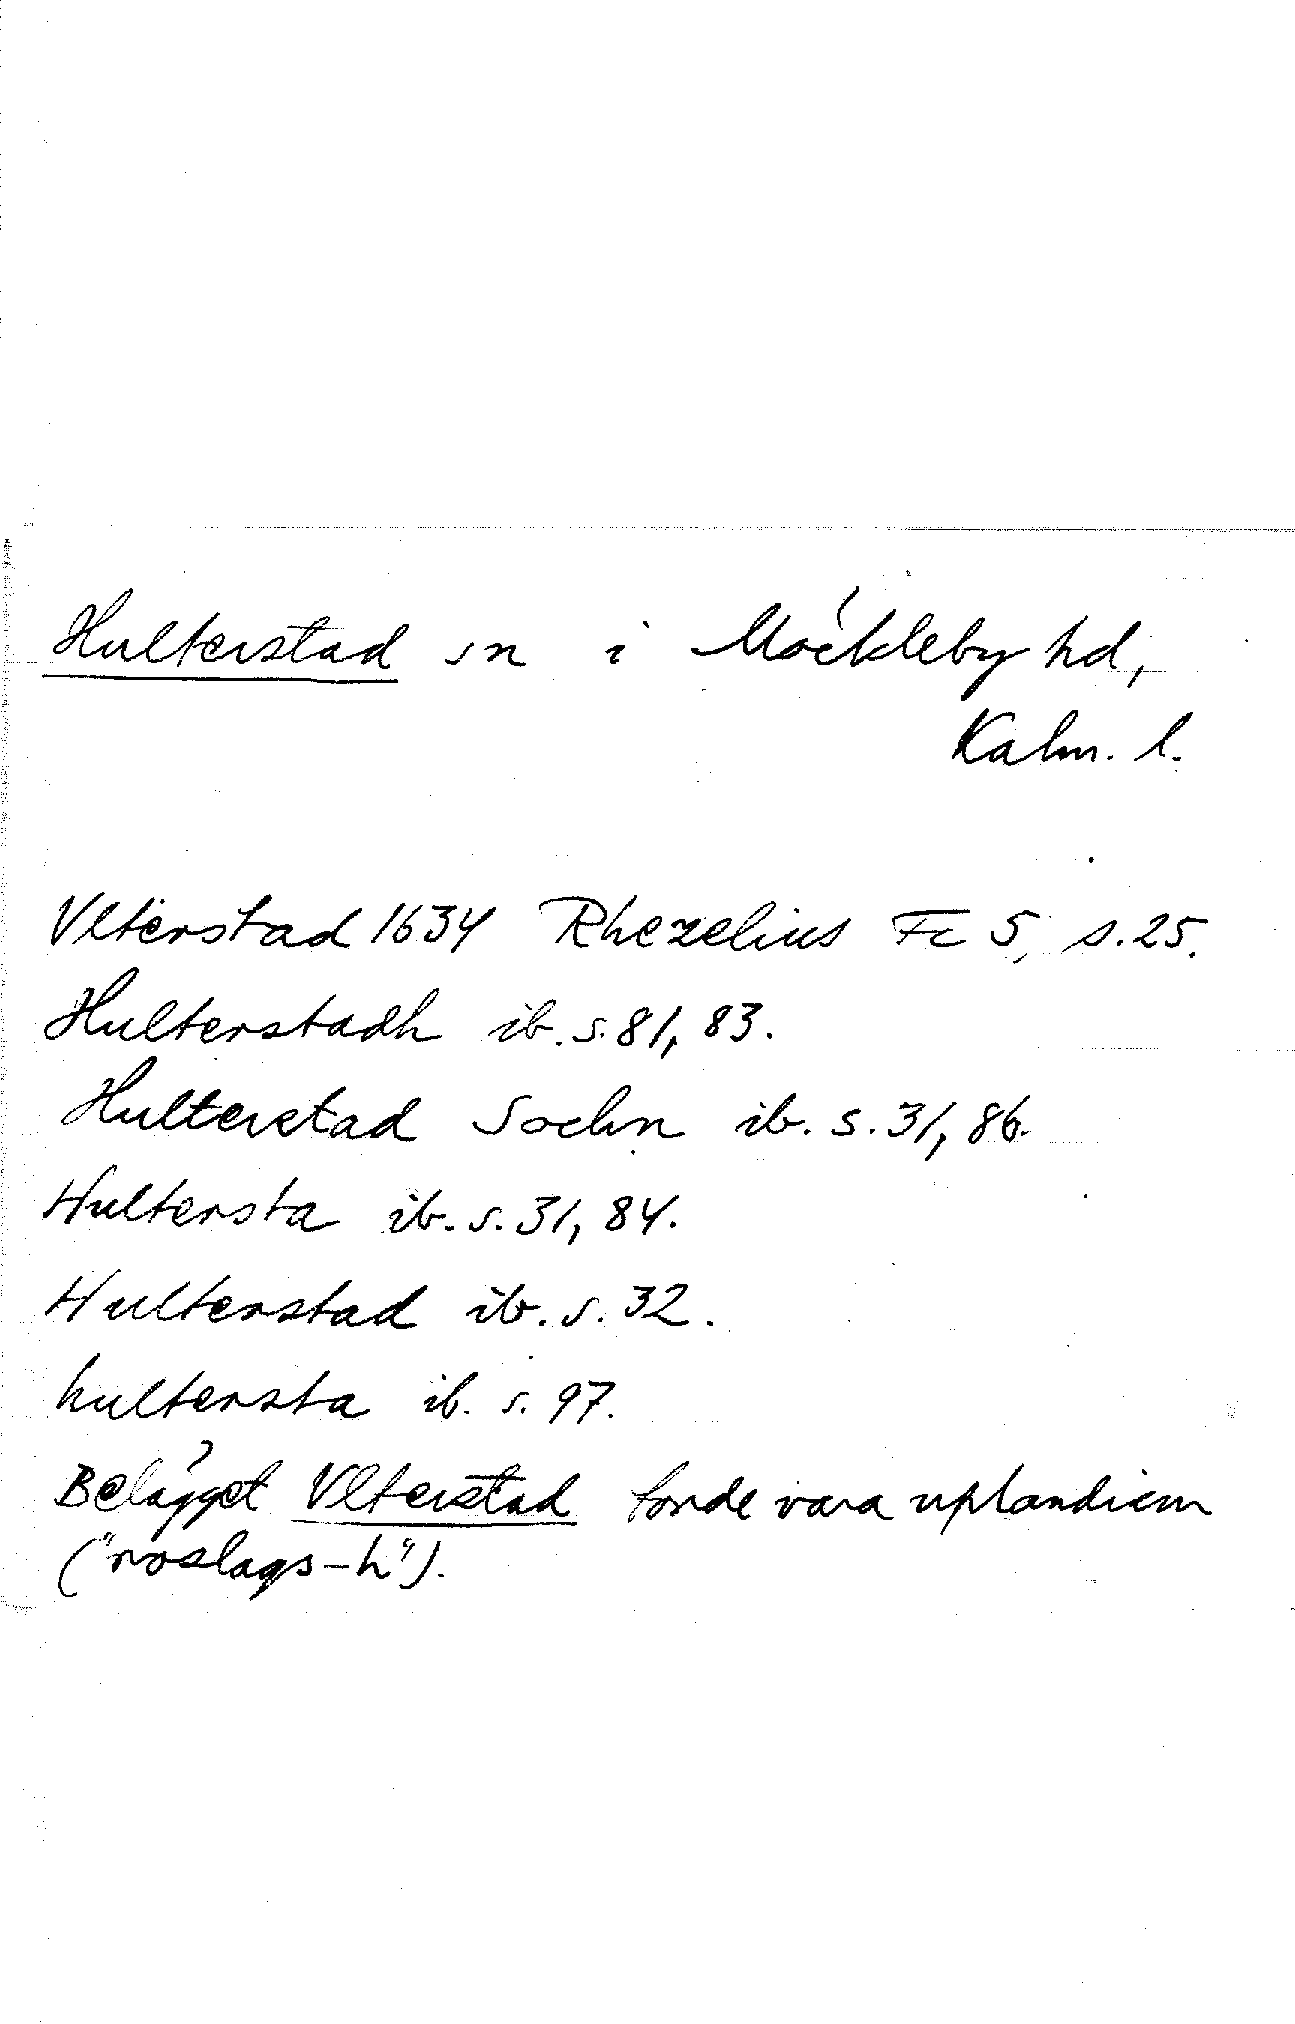 Hulterstad sn i Möckleby hd,
Kalm. l.
Vlterstad 1634 Rhezelius Fc 5, s. 25.
Hulterstadh ib. s. 81, 83.
Hulterstad Sochn ib. s. 31, 86.
Hultersta ib. s. 31, 84.
Hulterstad ib. s. 32.
hultersta ib. s. 97.
Belägget Vlterstad torde vara uplandism
("roslags-h").